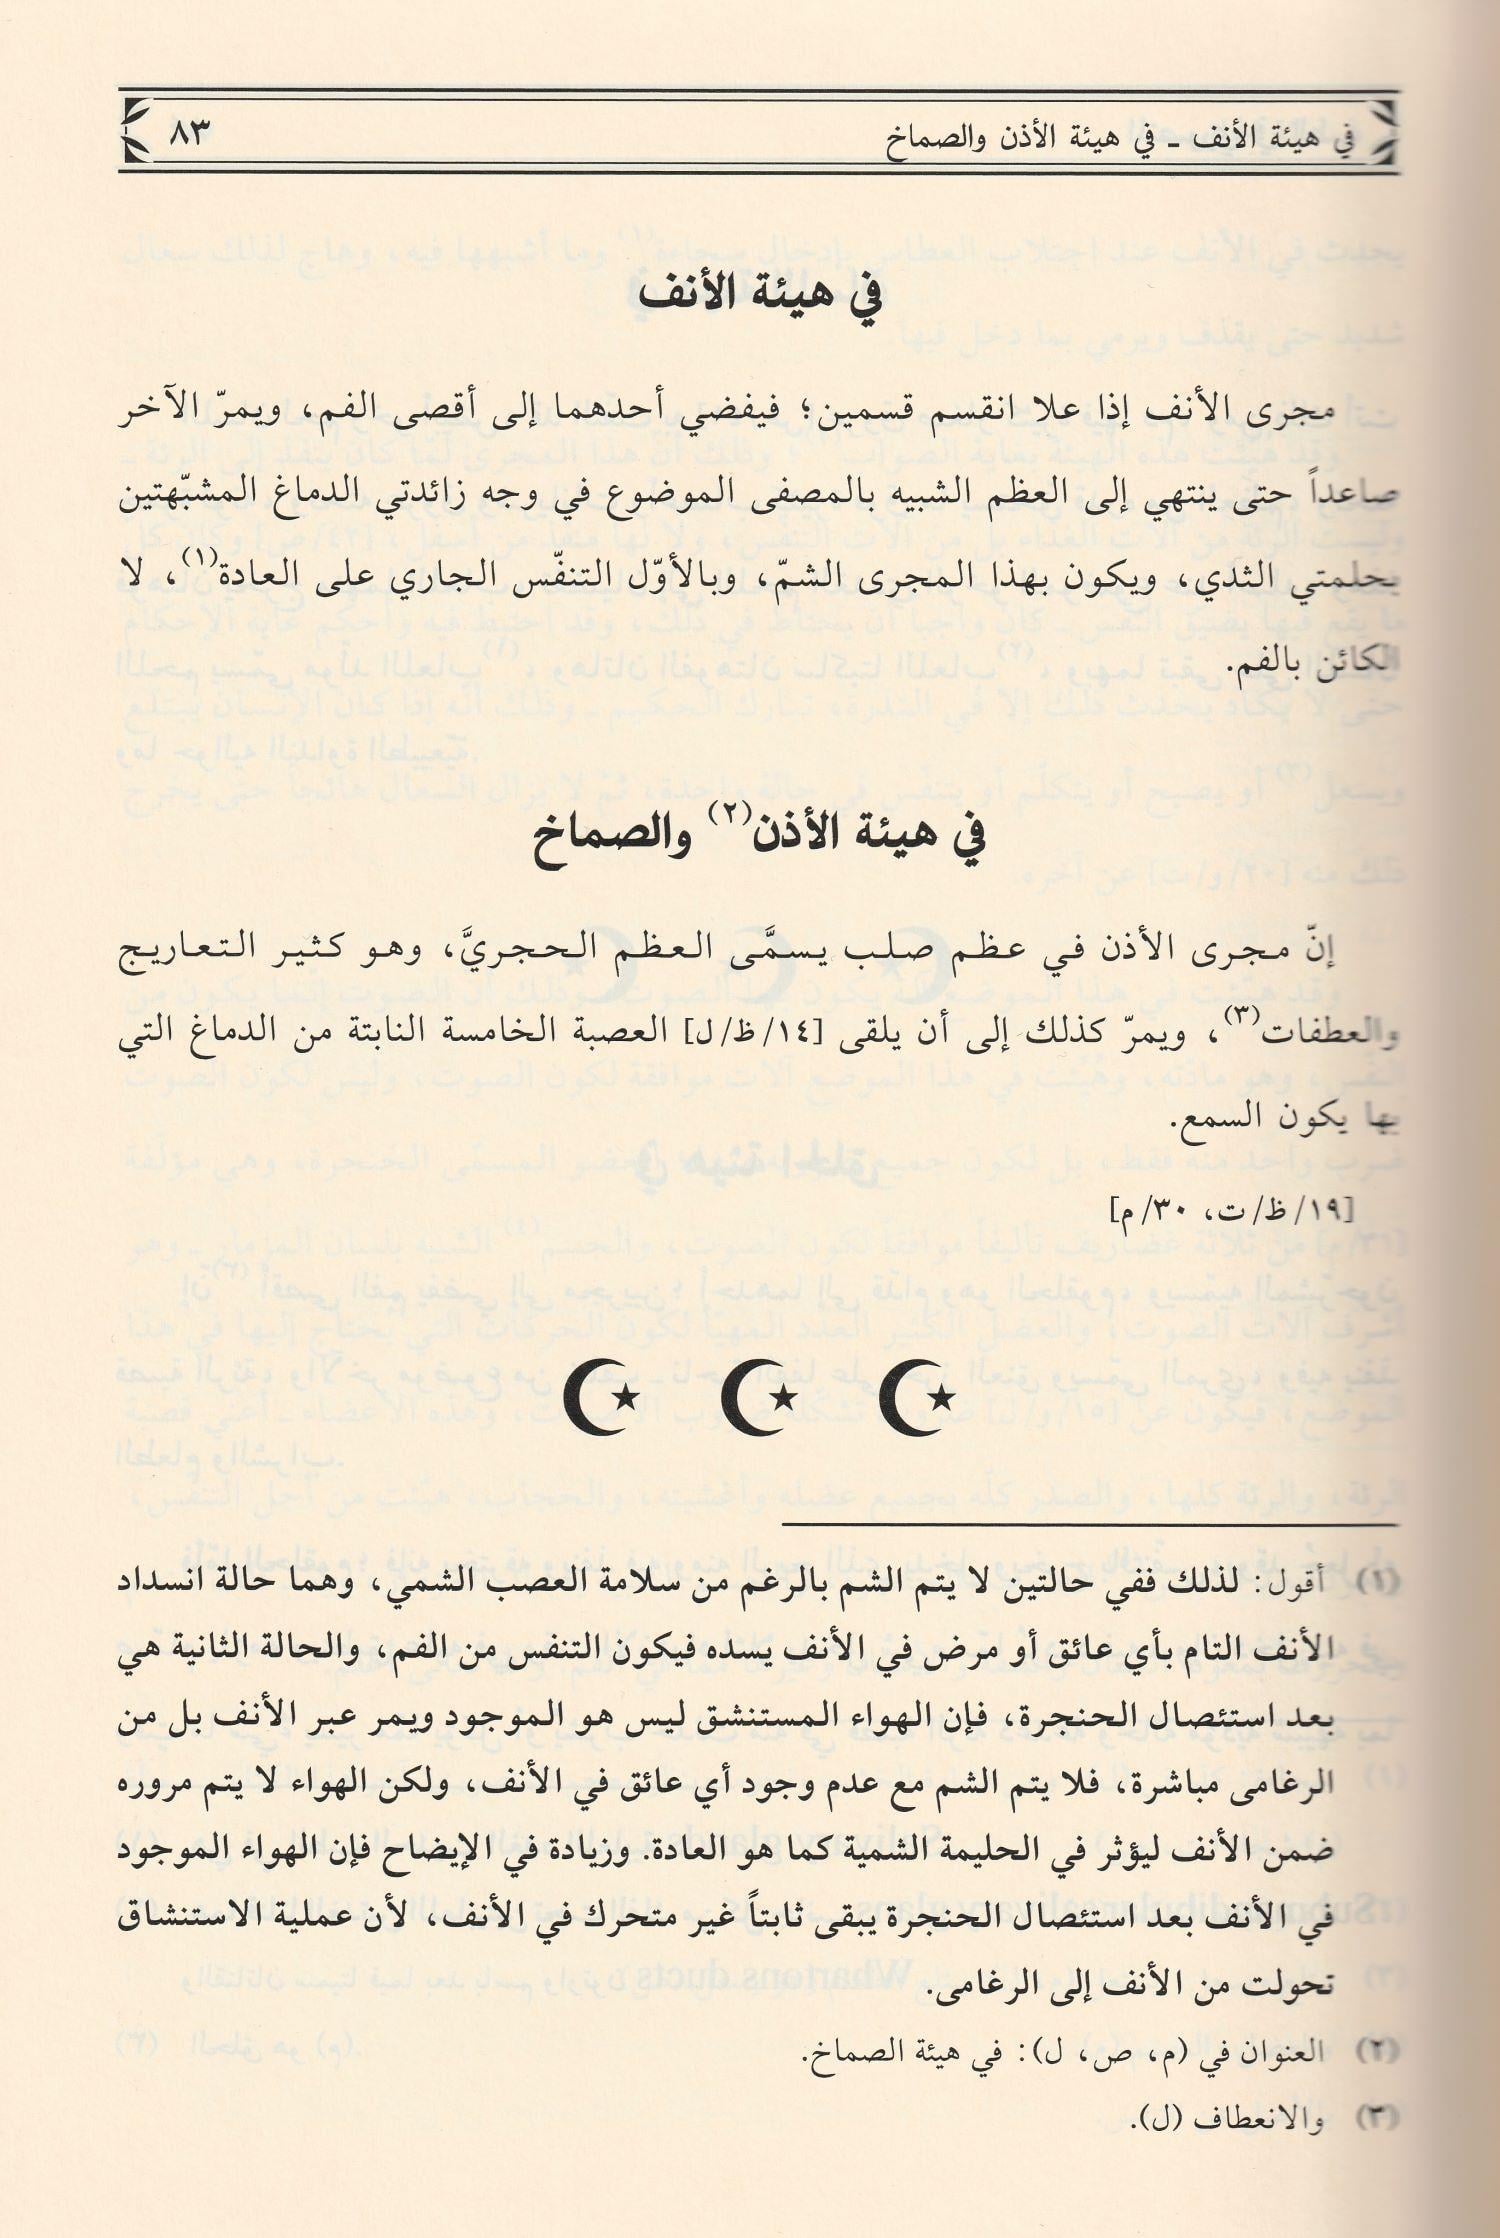 في هيئة الأنف ـ في هيئة الأذن والصماخ ٨٣
في هيئة الأنف
مجرى الأنف إذا علا انقسم قسمين؛ فيفضي أحدهما إلى أقصى الفم، ويمرّ الآخر
صاعداً حتى ينتهي إلى العظم الشبيه بالمصفى الموضوع في وجه زائدتي الدماغ المشبّهتين
بحلمتي الثدي، ويكون بهذا المجرى الشمّ، وبالأوّل التنفّس الجاري على العادة(١)، لا
الكائن بالفم.
في هيئة الأذن(٢) والصماخ
إنّ مجرى الأذن في عظم صلب يسمَّى العظم الحجريَّ، وهو كثير التعاريج
والعطفات(٣)، ويمرّ كذلك إلى أن يلقى [١٤/ ظ/ ل] العصبة الخامسة النابتة من الدماغ التي
بها يكون السمع.
[١٩/ ظ/ ت، ٣٠/ م]
(١) أقول: لذلك ففي حالتين لا يتم الشم بالرغم من سلامة العصب الشمي، وهما حالة انسداد
الأنف التام بأي عائق أو مرض في الأنف يسده فيكون التنفس من الفم، والحالة الثانية هي
بعد استئصال الحنجرة، فإن الهواء المستنشق ليس هو الموجود ويمر عبر الأنف بل من
الرغامى مباشرة، فلا يتم الشم مع عدم وجود أي عائق في الأنف، ولكن الهواء لا يتم مروره
ضمن الأنف ليؤثر في الحليمة الشمية كما هو العادة. وزيادة في الإيضاح فإن الهواء الموجود
في الأنف بعد استئصال الحنجرة يبقى ثابتاً غير متحرك في الأنف، لأن عملية الاستنشاق
تحولت من الأنف إلى الرغامى.
(٢) العنوان في (م، ص، ل): في هيئة الصماخ.
(٣) والانعطاف (ل).